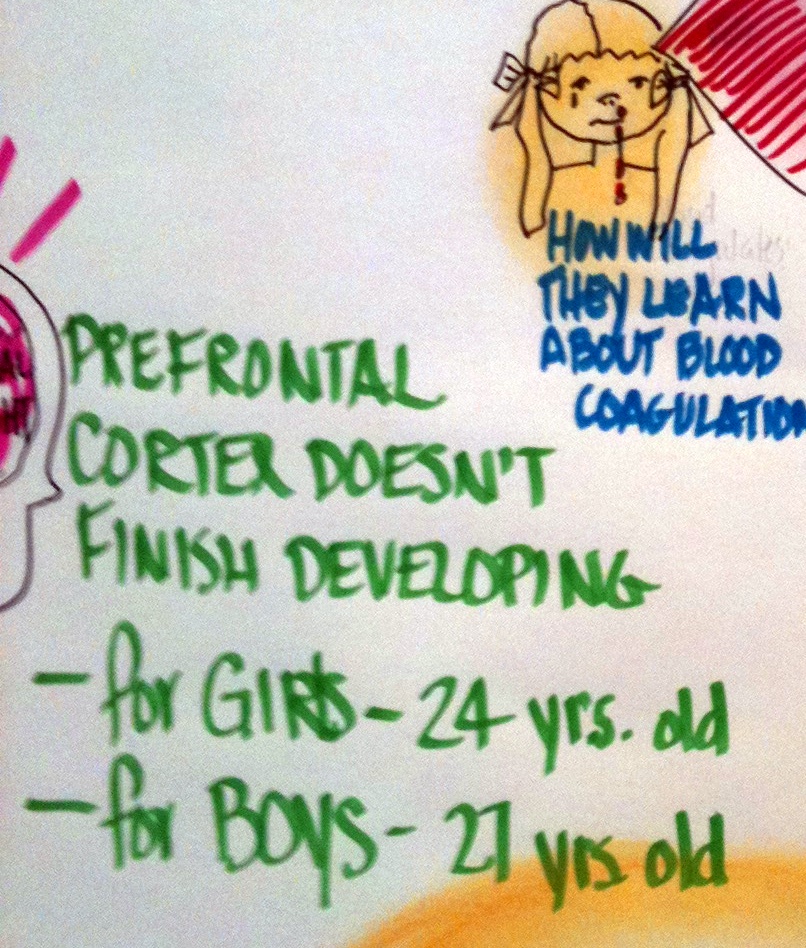 HOW WILL
THEY LEARN
ABOUT BLOOD
COAGULATION
PREFRONTAL
CORTEX DOESN'T
FINISH DEVELOPING
- for GIRLS - 24 yrs. old
- for BOYS - 27 yrs old